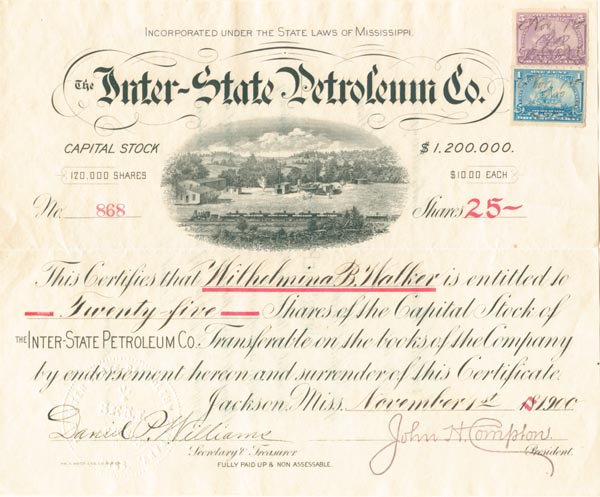 INCORPORATED UNDER THE STATE LAWS OF MISSISSIPPI.
The Inter-State Petroleum Co.
CAPITAL STOCK $1,200,000.
120,000 SHARES $10.00 EACH
No. 868 Shares 25
This Certifies that Wilhelmina B. Walker is entitled to
Twenty five Shares of the Capital Stock of
THE INTER-STATE PETROLEUM CO. Transferable on the books of the Company
by endorsement hereon and surrender of this Certificate.
Jackson, Miss. November 1st 1900
Daniel P. Williams John H. Compton
Secretary & Treasurer President.
FULLY PAID UP & NON ASSESSABLE.